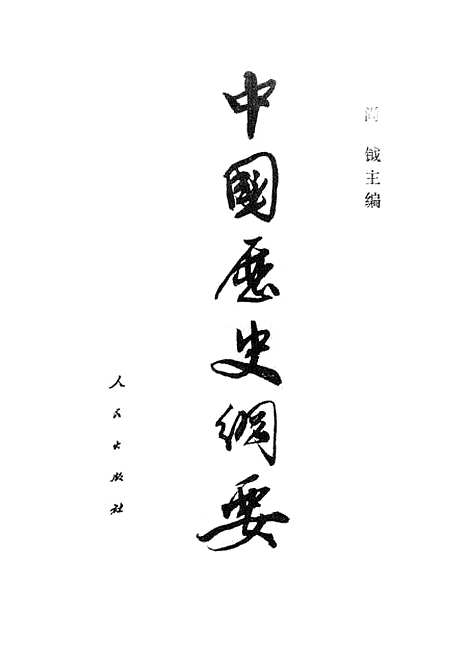 尚钺主编
中國歷史綱要
人民出版社